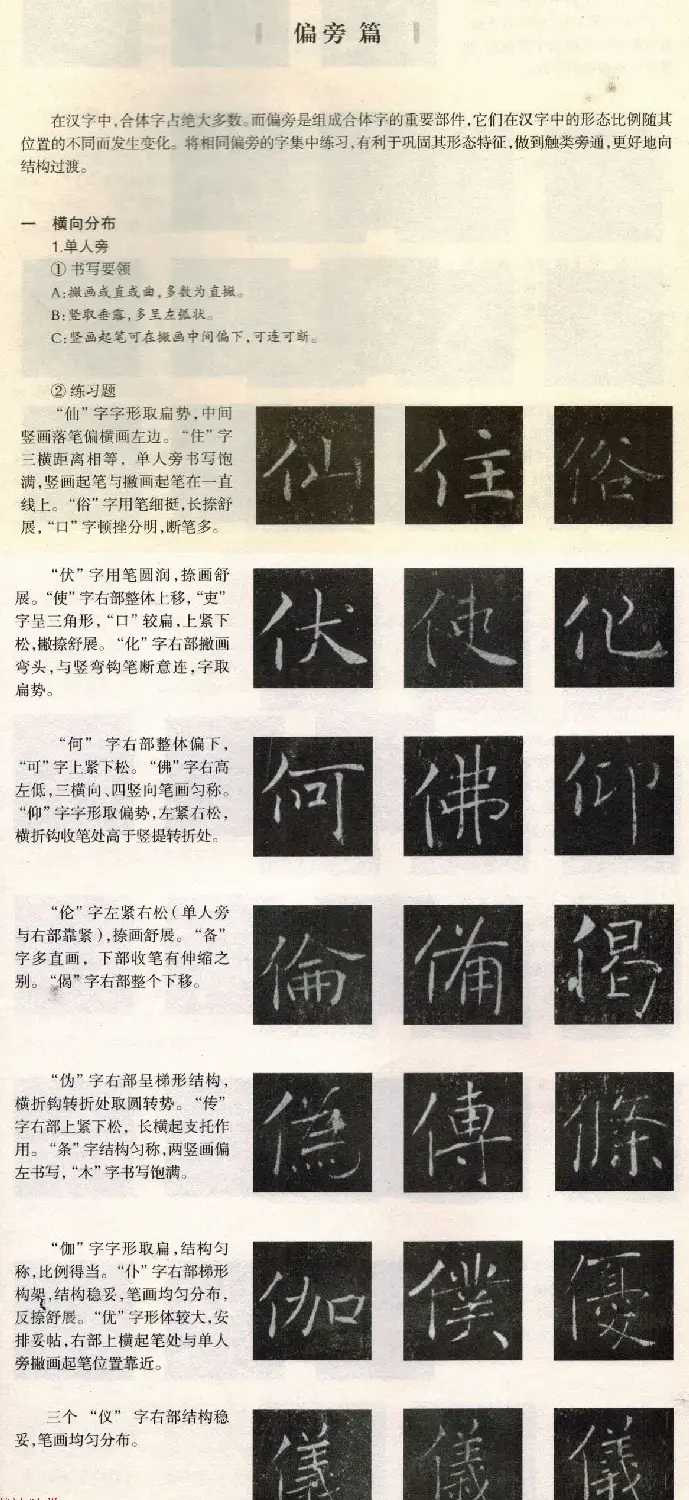 偏旁篇
在汉字中,合体字占绝大多数。而偏旁是组成合体字的重要部件,它们在汉字中的形态比例随其
位置的不同而发生变化。将相同偏旁的字集中练习,有利于巩固其形态特征,做到触类旁通,更好地向
结构过渡。
一 横向分布
1.单人旁
① 书写要领
A:撇画或直或曲,多数为直撇。
B:竖取垂露,多呈左弧状。
C:竖画起笔可在撇画中间偏下,可连可断。
② 练习题
“仙”字字形取扁势,中间
竖画落笔偏横画左边。“住”字
三横距离相等,单人旁书写饱
满,竖画起笔与撇画起笔在一直
线上。“俗”字用笔细挺,长捺舒
展,“口”字顿挫分明,断笔多。
仙 住 俗
“伏”字用笔圆润,捺画舒
展。“使”字右部整体上移,“吏”
字呈三角形,“口”较扁,上紧下
松,撇捺舒展。“化”字右部撇画
弯头,与竖弯钩笔断意连,字取
扁势。
伏 使 化
“何”字右部整体偏下,
“可”字上紧下松。“佛”字右高
左低,三横向、四竖向笔画匀称。
“仰”字字形取偏势,左紧右松,
横折钩收笔处高于竖提转折处。
何 佛 仰
“伦”字左紧右松(单人旁
与右部靠紧),捺画舒展。“备”
字多直画,下部收笔有伸缩之
别。“偈”字右部整个下移。
倫 備 偈
“伪”字右部呈梯形结构,
横折钩转折处取圆转势。“传”
字右部上紧下松,长横起支托作
用。“条”字结构匀称,两竖画偏
左书写,“木”字书写饱满。
僞 傳 條
“伽”字字形取扁,结构匀
称,比例得当。“仆”字右部梯形
构架,结构稳妥,笔画均匀分布,
反捺舒展。“优”字形体较大,安
排妥帖,右部上横起笔处与单人
旁撇画起笔位置靠近。
伽 僕 優
三个“仪”字右部结构稳
妥,笔画均匀分布。
儀 儀 儀